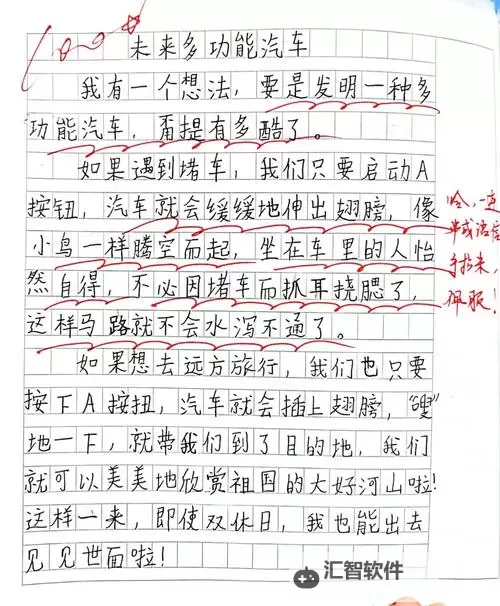 100☆
未来多功能汽车
我有一个想法，要是发明一种多
功能汽车，甭提有多酷了。
如果遇到堵车，我们只要启动A
按钮，汽车就会缓缓地伸出翅膀，像
小鸟一样腾空而起，坐在车里的人怡
然自得，不必因堵车而抓耳挠腮了，
这样马路就不会水泻不通了。
如果想去远方旅行，我们也只要
按下A按扭，汽车就会插上翅膀，“嗖”
地一下，就带我们到了目的地，我们
就可以美美地欣赏祖国的大好河山啦！
这样一来，即使双休日，我也能出去
见见世面啦！
哈，一连
串成语信
手拈来，
佩服！
汇智软件